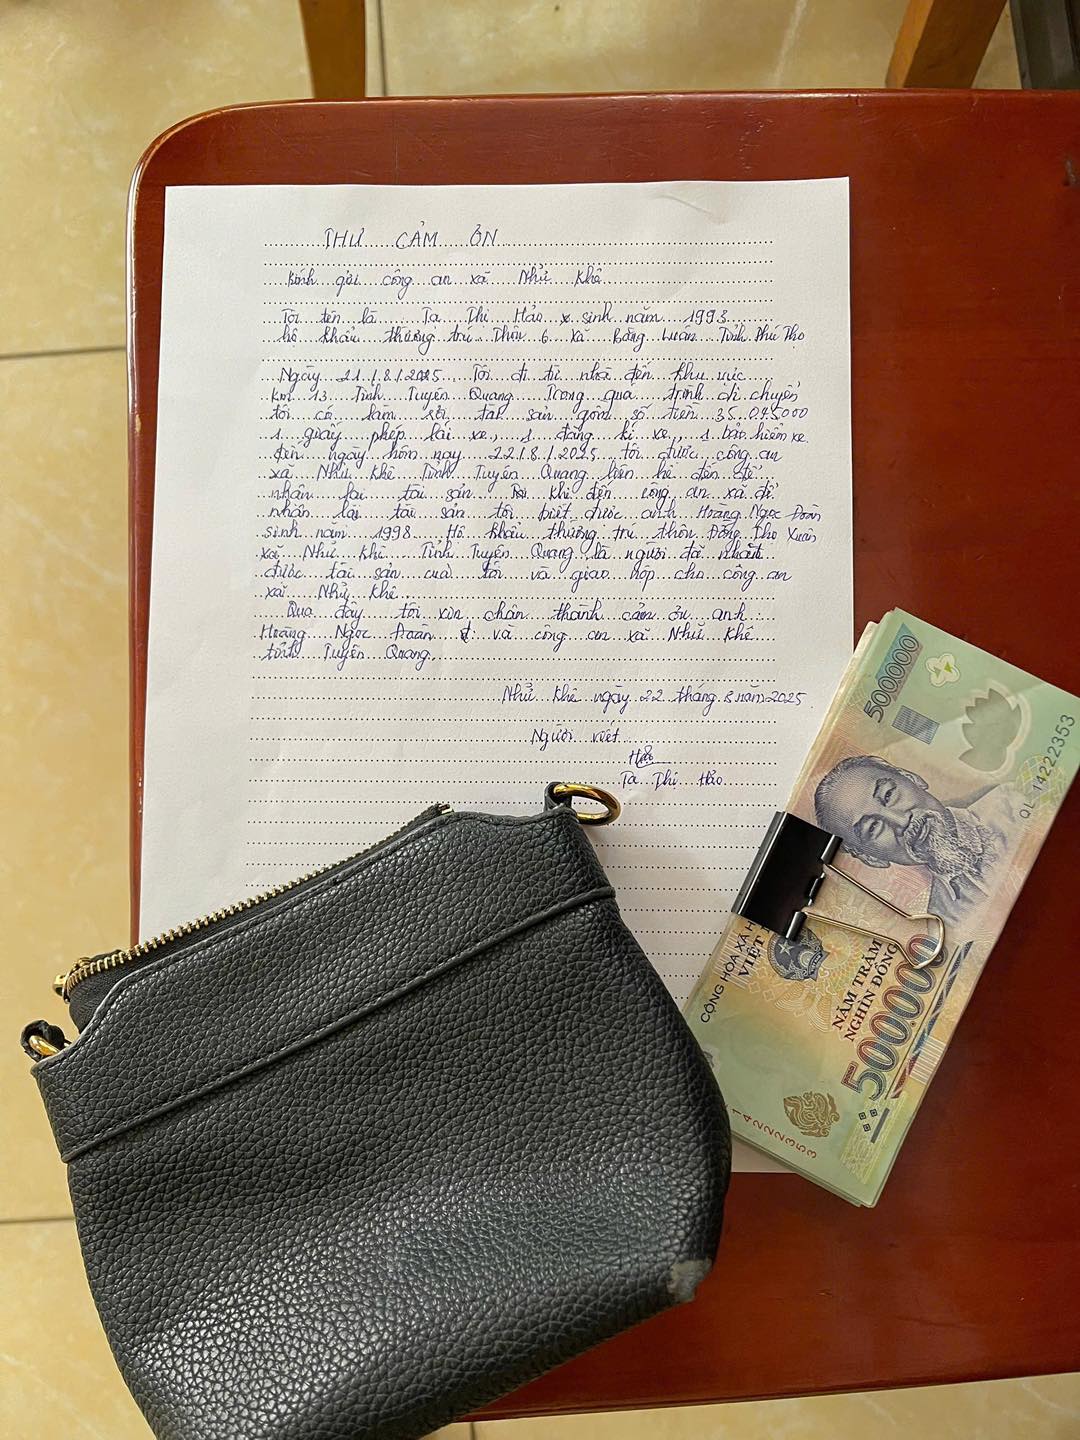 THƯ CẢM ƠN
Kính gửi công an xã Nhữ Khê
Tôi tên là Tạ Thị Hảo sinh năm 1993
hộ khẩu thường trú Thôn 6 xã Bằng Luân Tỉnh Phú Thọ
Ngày 21/8/2025 Tôi đi từ nhà đến khu vực
Km 13 Tỉnh Tuyên Quang Trong quá trình di chuyển
tôi có làm rơi tài sản gồm số tiền 35.045.000
1 giấy phép lái xe, 1 đăng kí xe, 1 bảo hiểm xe
đến ngày hôm nay 22/8/2025 tôi được công an
xã Nhữ Khê Tỉnh Tuyên Quang liên hệ đến để
nhận lại tài sản khi đến công an xã để
nhận lại tài sản tôi biết được anh Hoàng Ngọc Đoàn
sinh năm 1998 Hộ khẩu thường trú thôn Đồng Thọ Xuân
xã Nhữ Khê Tỉnh Tuyên Quang là người đã nhặt
được tài sản của tôi và giao nộp cho công an
xã Nhữ Khê
Qua đây tôi xin chân thành cảm ơn anh
Hoàng Ngọc Đoàn và công an xã Nhữ Khê
tỉnh Tuyên Quang.
Nhữ Khê ngày 22 tháng 8 năm 2025
Người viết
Hảo
Tạ Thị Hảo
500000
QL 14222353
CỘNG HÒA XÃ H
VIỆT
NĂM TRĂM
NGHÌN ĐỒNG
500000
14222353